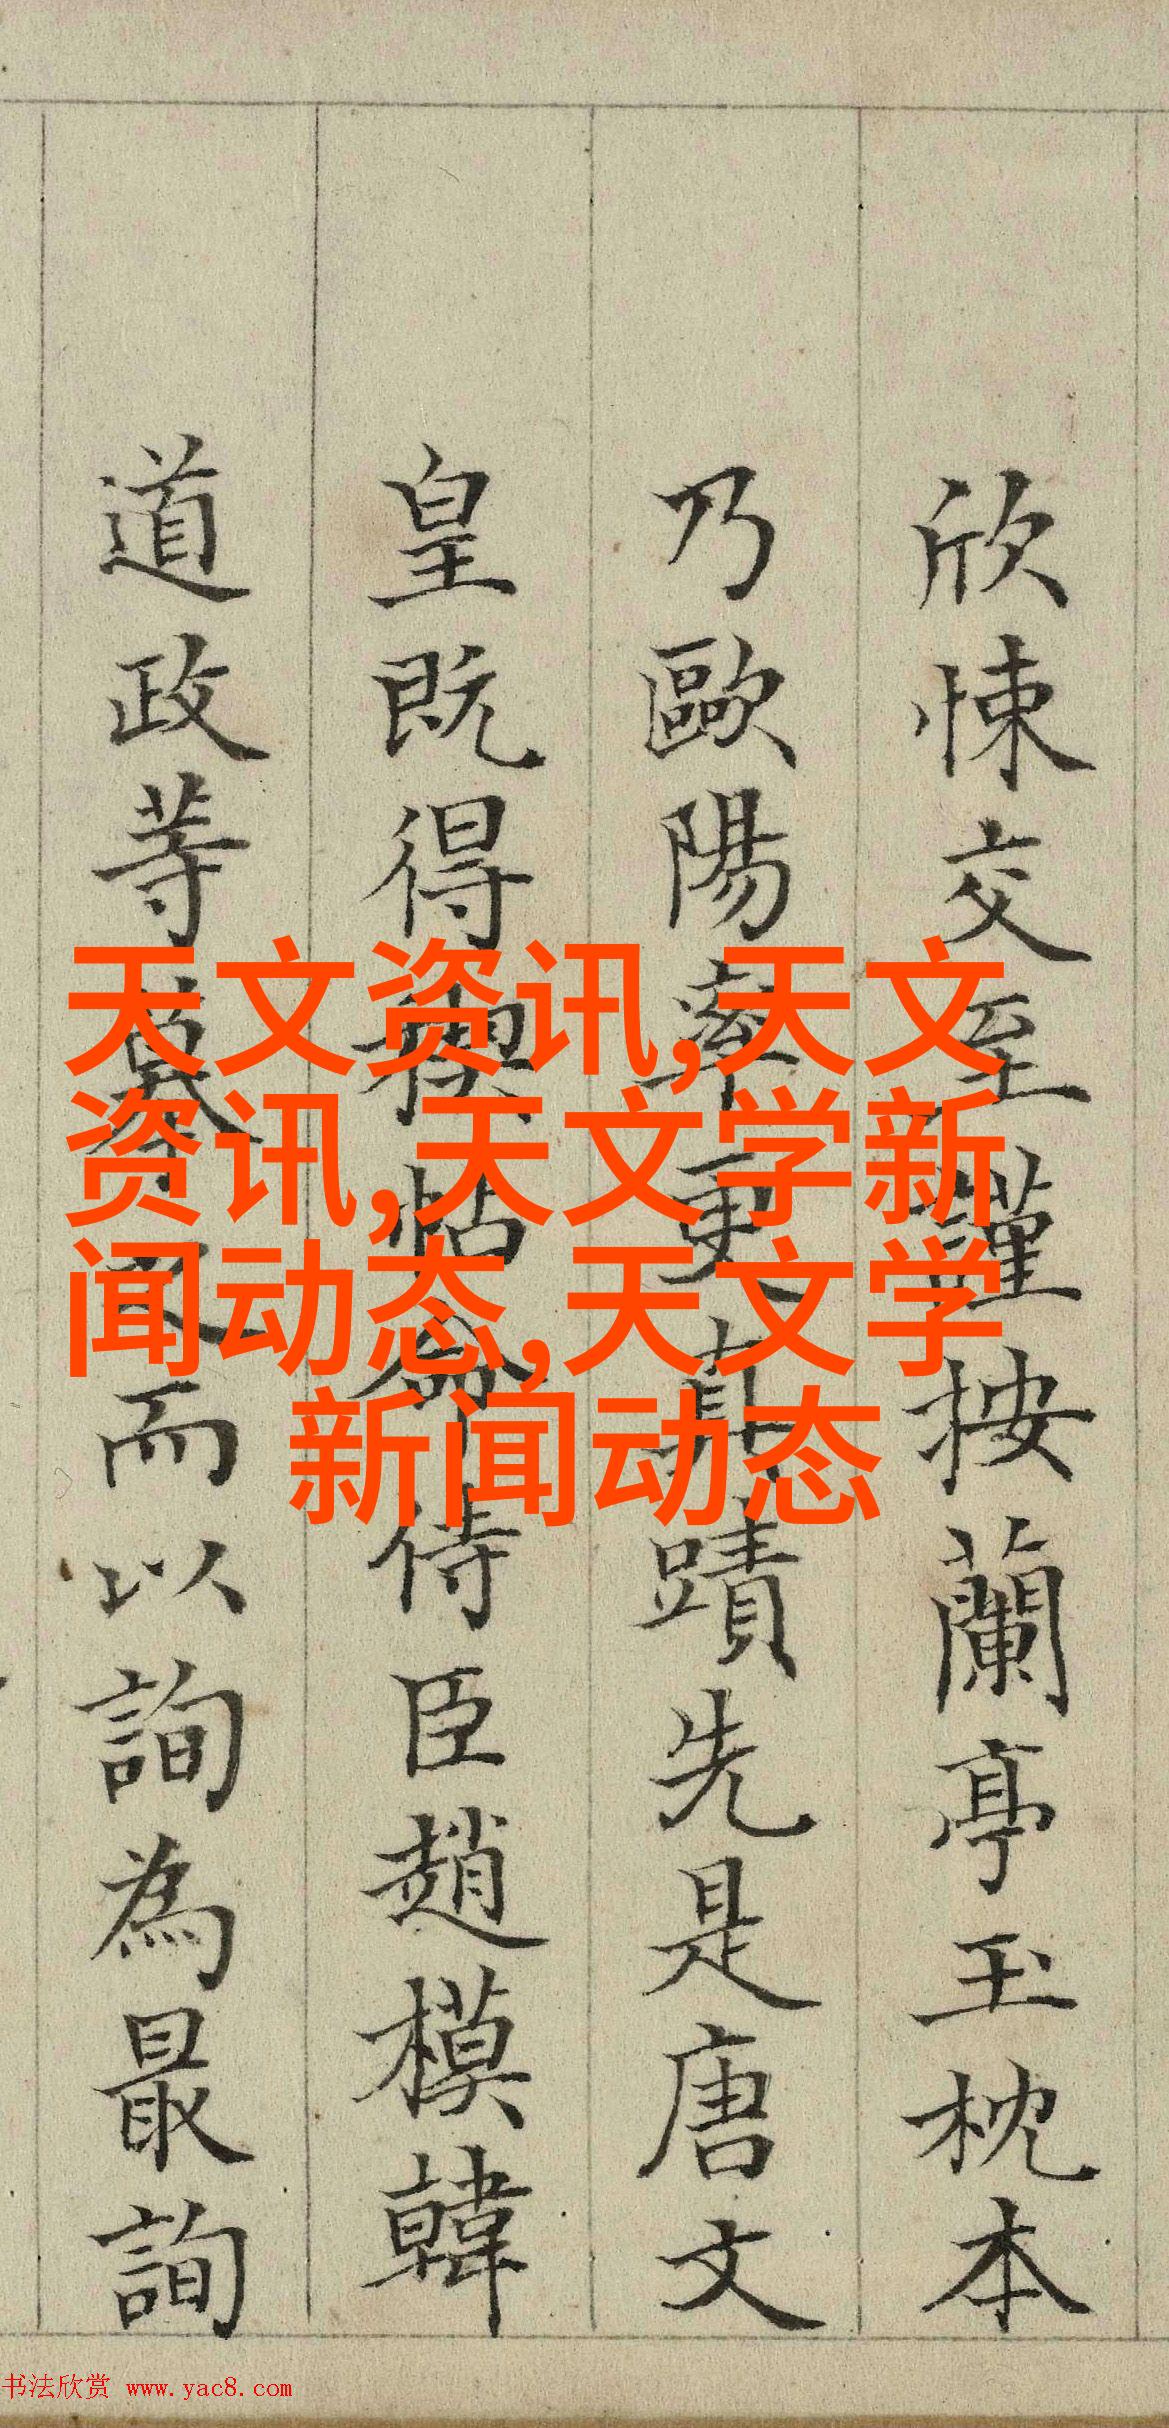 欣悚交至謹按蘭亭玉枕本
乃歐陽率更真蹟先是唐文
皇既得稧帖命侍臣趙模韓
道政等摹而以詢為最詢
天文资讯,天文
资讯,天文学新
闻动态,天文学
新闻动态
书法欣赏 www.yac8.com